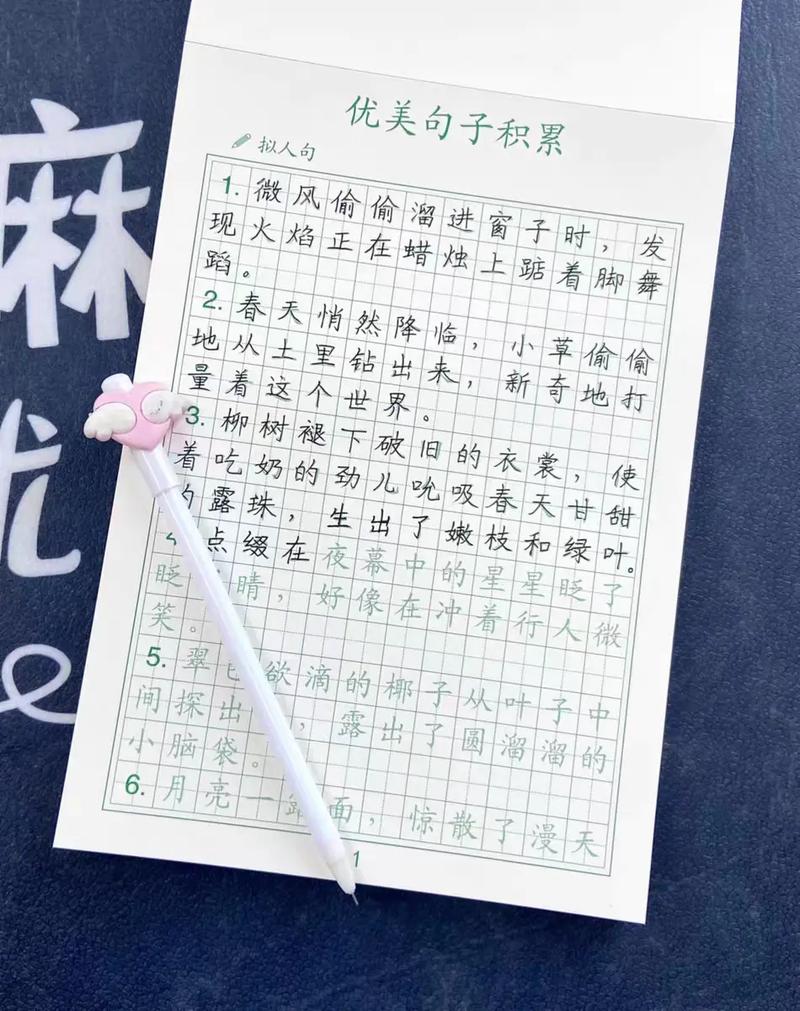 优美句子积累
拟人句
1. 微风偷偷溜进窗子时，发
现火焰正在蜡烛上踮着脚舞
蹈。
2. 春天悄然降临，小草偷偷
地从土里钻出来，新奇地打
量着这个世界。
3. 柳树褪下破旧的衣裳，使
着吃奶的劲儿吮吸春天甘甜
的露珠，生出了嫩枝和绿叶。
点缀在夜幕中的星星眨了
眨 睛，好像在冲着行人微
笑。
5. 翠 欲滴的椰子从叶子中
间探出 ，露出了圆溜溜的
小脑袋。
6. 月亮一露面，惊散了漫天
1
麻
优